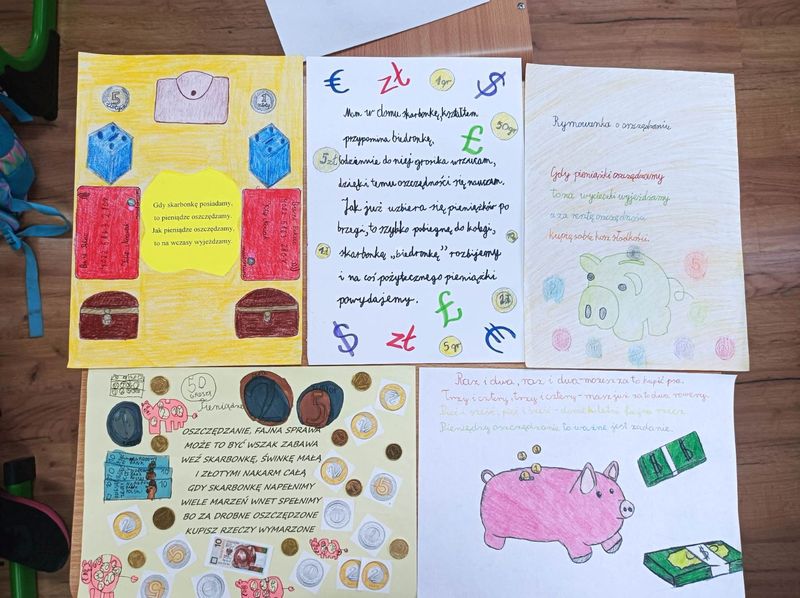 5
złotych
1
złoty
Gdy skarbonkę posiadamy,
to pieniądze oszczędzamy.
Jak pieniądze oszczędzamy,
to na wczasy wyjeżdzamy.
€ zł 1gr $
Mam w domu skarbonkę, kształtem
przypomina biedronkę,
£ 50gr
5zł
codziennie do niej grosika wrzucam,
dzięki temu oszczędności się nauczam.
Jak już uzbiera się pieniążków po
brzegi, to szybko pobiegnę do kolegi,
skarbonkę „biedronkę” rozbijemy
i na coś pożytecznego pieniążki
powydajemy.
£
$ zł 5gr €
Rymowanka o oszczędzaniu
Gdy pieniążki oszczędzamy
to na wycieczki wyjeżdżamy
a za resztę oszczędności
kupię sobie kosz słodkości.
2 5
50
GROSZY
Pieniądze
2 5
OSZCZĘDZANIE, FAJNA SPRAWA
MOŻE TO BYĆ WSZAK ZABAWA
WEŹ SKARBONKĘ, ŚWINKĘ MAŁĄ
I ZŁOTYMI NAKARM CAŁĄ
GDY SKARBONKĘ NAPEŁNIMY
WIELE MARZEŃ WNET SPEŁNIMY
BO ZA DROBNE OSZCZĘDZONE
KUPISZ RZECZY WYMARZONE
10 10
Raz i dwa, raz i dwa - możesz za to kupić psa.
Trzy i cztery, trzy i cztery - masz już za to dwa rowery.
Pięć i sześć, pięć i sześć
Pieniędzy oszczędzanie to ważne jest zadanie.
$ $
$